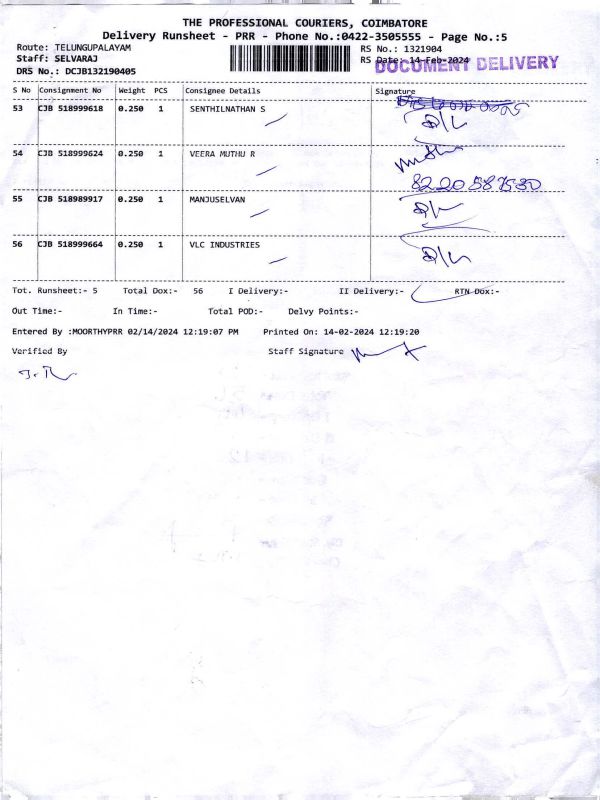 THE PROFESSIONAL COURIERS, COIMBATORE
Delivery Runsheet - PRR - Phone No.:0422-3505555 - Page No.:5
Route: TELUNGUPALAYAM RS No.: 1321904
Staff: SELVARAJ RS Date: 14-Feb-2024
DOCUMENT DELIVERY
DRS No.: DCJB132190405
S No Consignment No Weight PCS Consignee Details Signature
53 CJB 518999618 0.250 1 SENTHILNATHAN S
D/L
54 CJB 518999624 0.250 1 VEERA MUTHU R
8220587530
55 CJB 518989917 0.250 1 MANJUSELVAN D/L
56 CJB 518999664 0.250 1 VLC INDUSTRIES D/L
Tot. Runsheet:- 5 Total Dox:- 56 I Delivery:- II Delivery:- RTN Dox:-
Out Time:- In Time:- Total POD:- Delvy Points:-
Entered By :MOORTHYPRR 02/14/2024 12:19:07 PM Printed On: 14-02-2024 12:19:20
Verified By Staff Signature